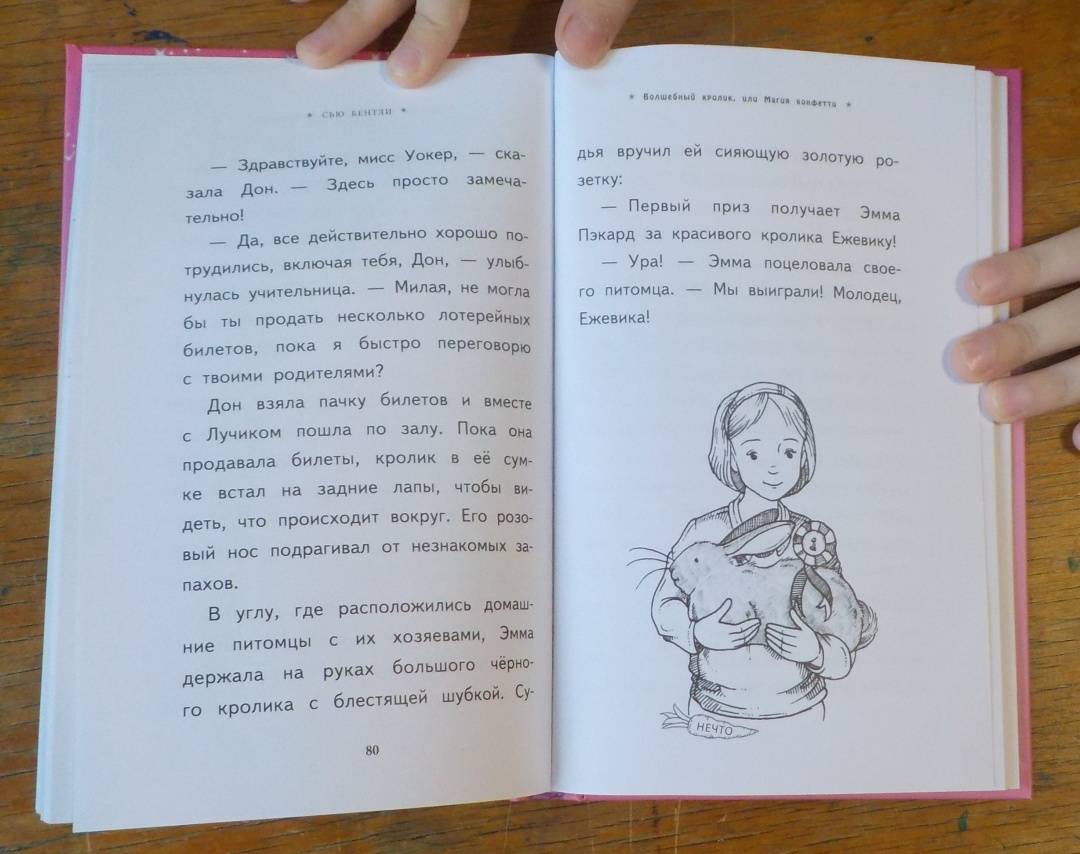 ★ СЬЮ БЕНТЛИ ★
— Здравствуйте, мисс Уокер, — ска-
зала Дон. — Здесь просто замеча-
тельно!
— Да, все действительно хорошо по-
трудились, включая тебя, Дон, — улыб-
нулась учительница. — Милая, не могла
бы ты продать несколько лотерейных
билетов, пока я быстро переговорю
с твоими родителями?
Дон взяла пачку билетов и вместе
с Лучиком пошла по залу. Пока она
продавала билеты, кролик в её сум-
ке встал на задние лапы, чтобы ви-
деть, что происходит вокруг. Его розо-
вый нос подрагивал от незнакомых за-
пахов.
В углу, где расположились домаш-
ние питомцы с их хозяевами, Эмма
держала на руках большого чёрно-
го кролика с блестящей шубкой. Су-
80
★ Волшебный кролик, или Магия конфетти ★
дья вручил ей сияющую золотую ро-
зетку:
— Первый приз получает Эмма
Пэкард за красивого кролика Ежевику!
— Ура! — Эмма поцеловала свое-
го питомца. — Мы выиграли! Молодец,
Ежевика!
1
НЕЧТО